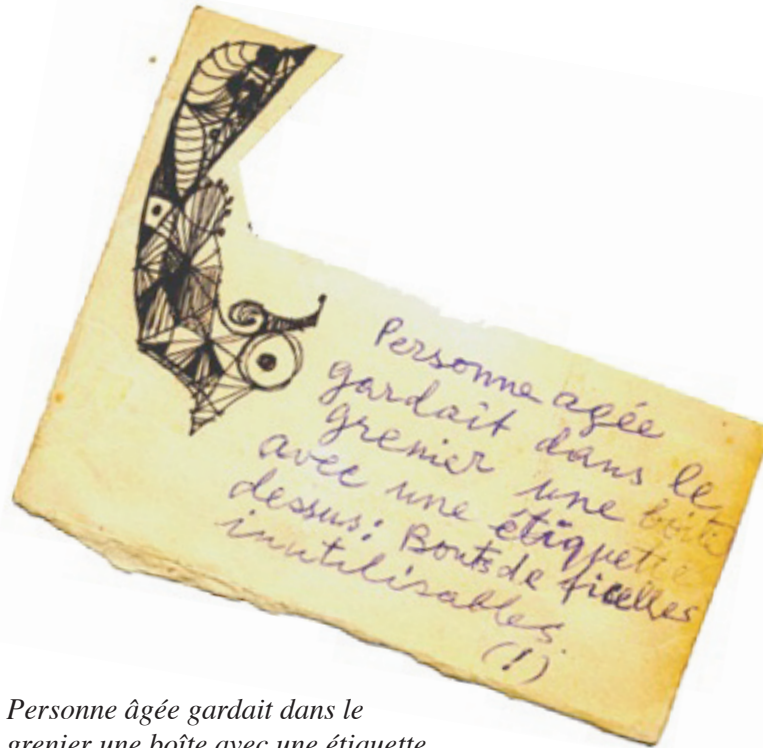 Personne agée
gardait dans le
grenier une boîte
avec une étiquette
dessus: Bouts de ficelles
inutilisables.
(!)
Personne âgée gardait dans le
grenier une boîte avec une étiquette